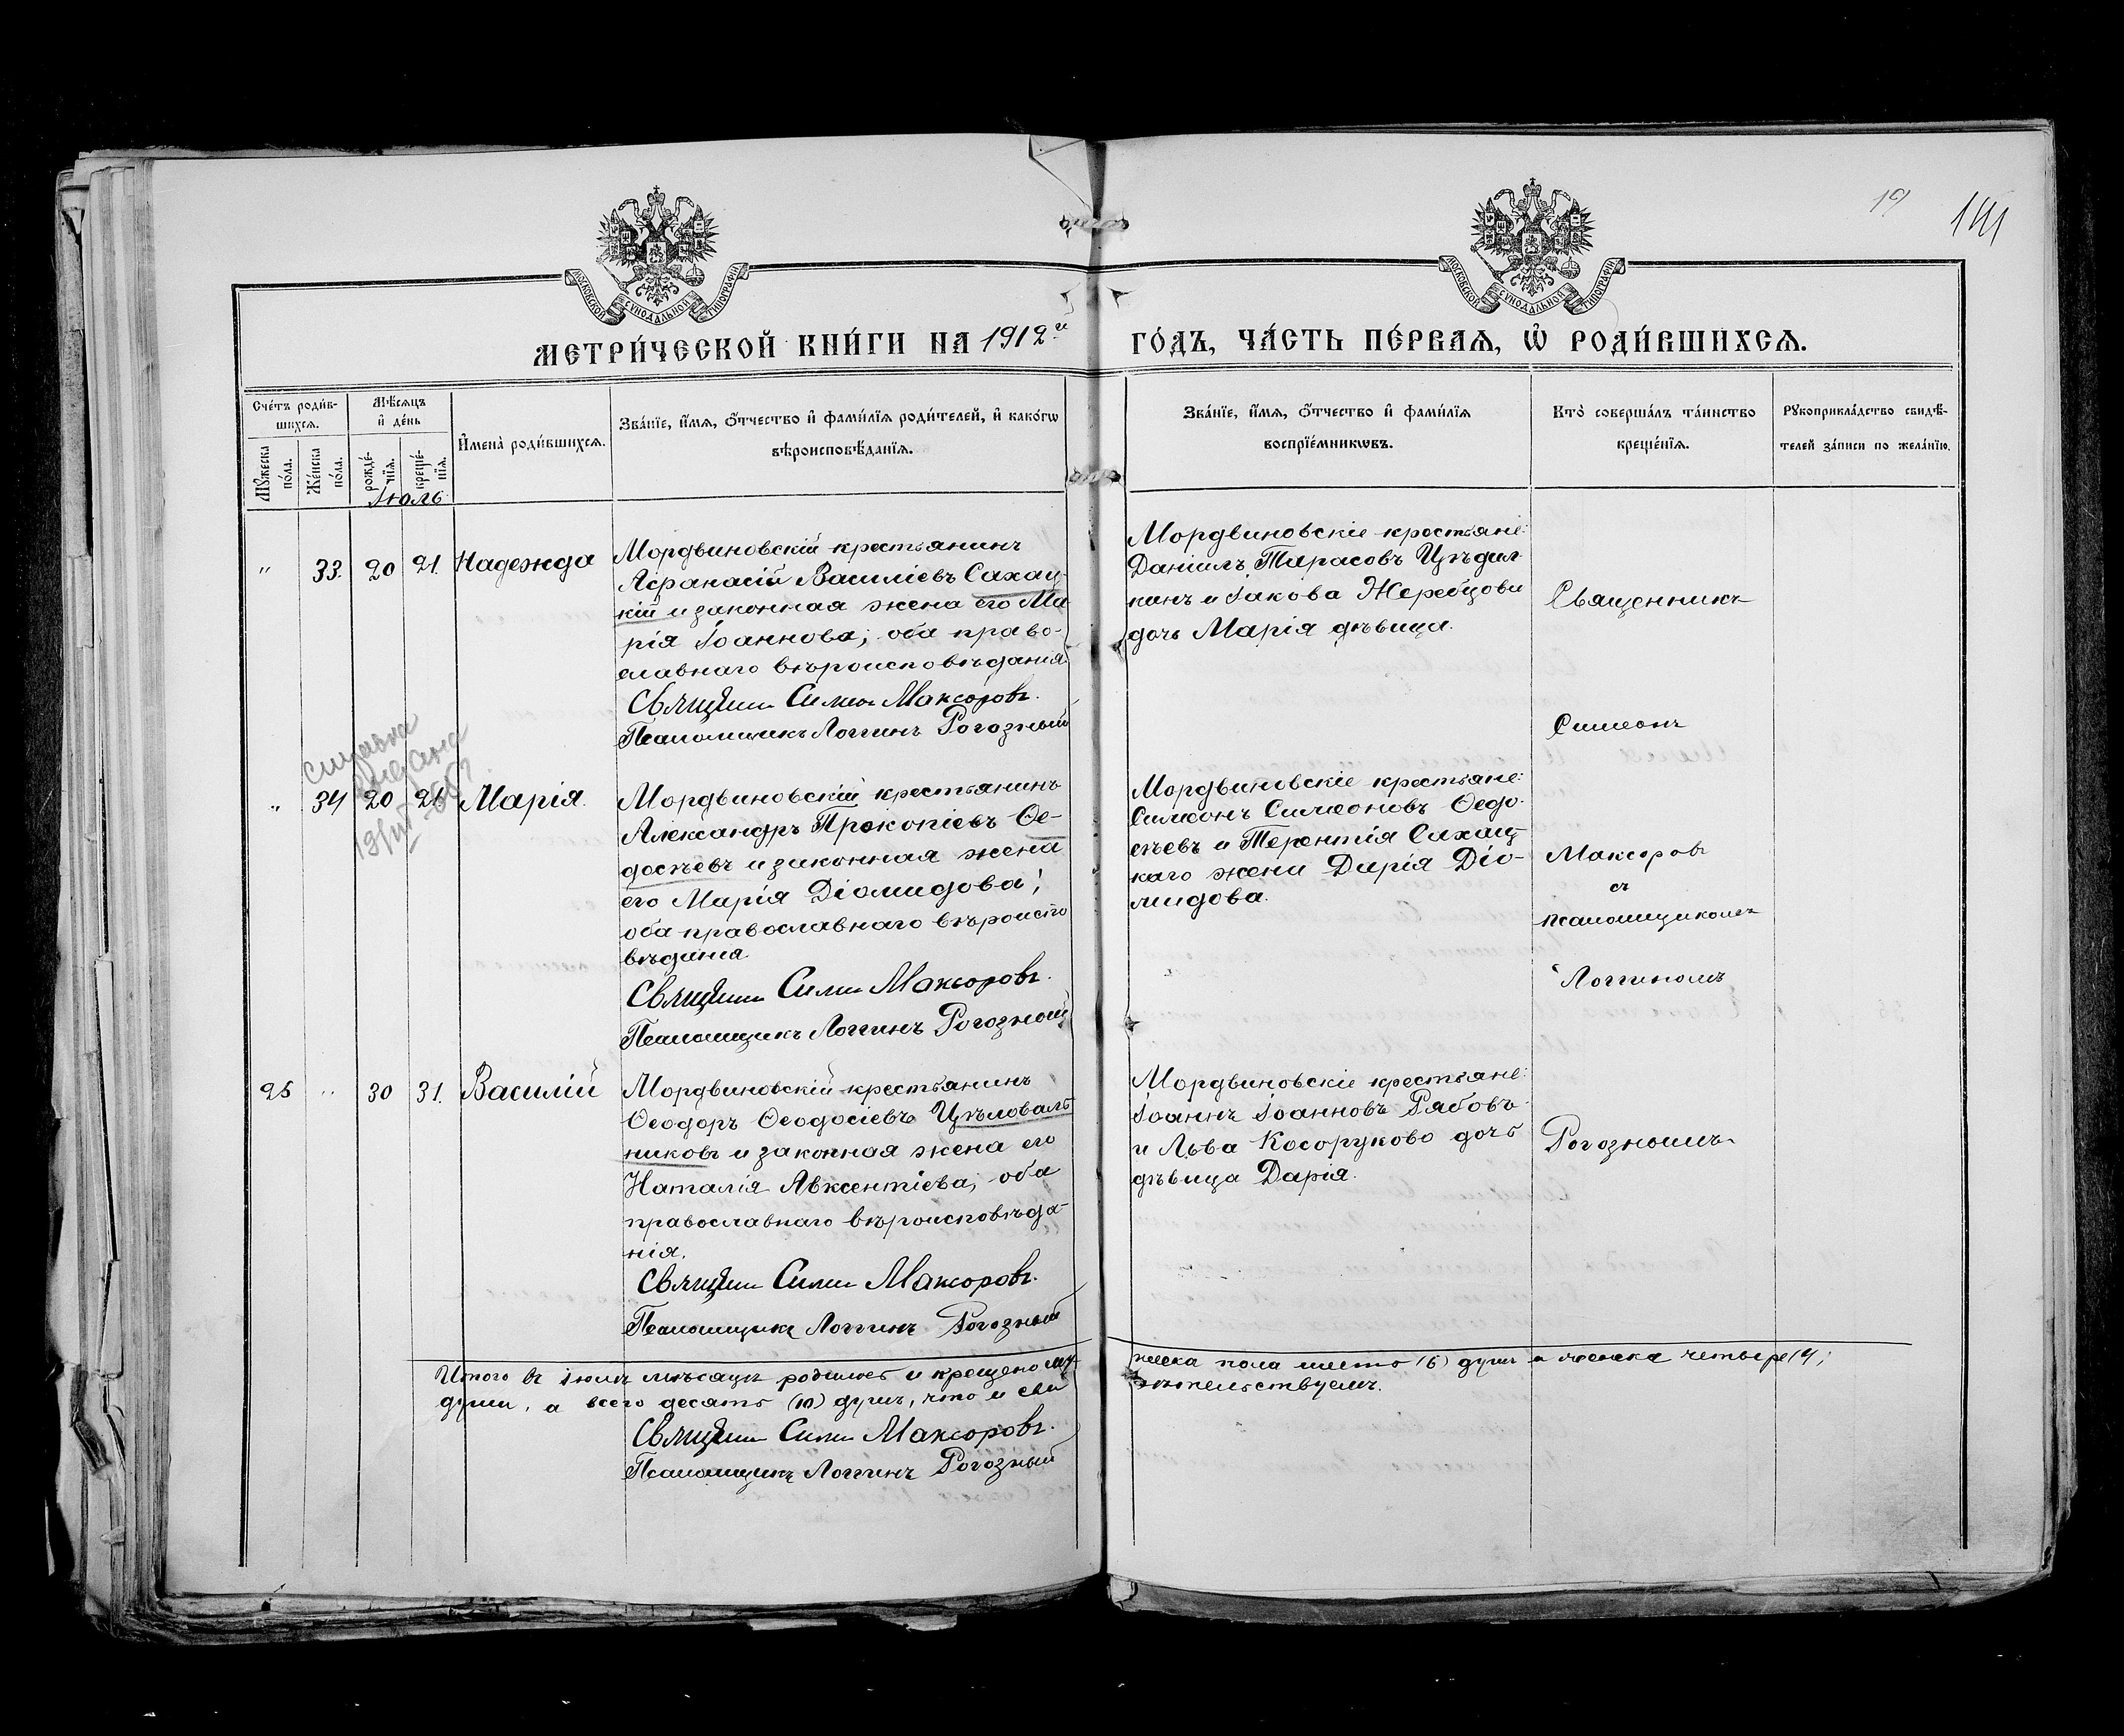 19
141
МОСКОВСКОЙ СѴНОДАЛЬНОЙ ТИПОГРАФІИ
МОСКОВСКОЙ СѴНОДАЛЬНОЙ ТИПОГРАФІИ
МЕТРИ́ЧЕСКОЙ КНИ́ГИ НА 1912й
ГО́ДЪ, ЧА́СТЬ ПЕ́РВАѦ, Ѡ҆ РОДИ́ВШИХСѦ.
Сче́тъ роди́в-
шихсѧ.
Мѣ́сѧцъ
и҆ де́нь
И҆мена̀ роди́вшихсѧ.
Зва́нїе, и҆́мѧ, ѻ҆́тчество и҆ фами́лїѧ роди́телей, и҆ како́гѡ
вѣроисповѣ́данїѧ.
Мꙋ́жеска
по́ла.
Же́нска
по́ла.
рожде́-
нїѧ.
креще́-
нїѧ.
Зва́нїе, и҆́мѧ, ѻ҆́тчество и҆ фами́лїѧ
воспрїе́мникѡвъ.
Кто̀ соверша́лъ та́инство
креще́нїѧ.
Рꙋкоприкла́дство свидѣ́-
телей за́писи по жела́нїю.
Іюль
" 33. 20 21. Надежда
Мордвиновскій крестьянинъ
Аѳанасій Василіевъ Сахац-
кій и законная жена его Ма
рія Іоаннова; оба право-
славнаго вѣроисповѣданія
Священ Симеон Максоровъ.
Псаломщикъ Логгинъ Рогозный
Мордвиновскіе крестьяне:
Даніилъ Тарасовъ Цѣдил
кинъ и Іакова Жеребцова
дочь Марія дѣвица.
справка
выдана
" 34 20 21 Марія.
Мордвиновскій крестьянинъ
Александръ Прокопіевъ Ѳе-
досѣевъ и законная жена
его Марія Діомидова;
оба православнаго вѣроиспо
вѣданія
Священ Симеон Максоровъ.
Псаломщикъ Логгинъ Рогозный
Мордвиновскіе крестьяне:
Симеонъ Симеоновъ Ѳедо-
сѣевъ и Терентія Сахац-
каго жена Дарія Діо-
мидова.
25 " 30 31. Василій
Мордвиновскій крестьянинъ
Ѳеодоръ Ѳеодосіевъ Цѣловаль
никовъ и законная жена его
Наталія Авксентіева, оба
православнаго вѣроисповѣда-
нія.
Священ Симеон Максоровъ.
Псаломщикъ Логгинъ Рогозный
Мордвиновскіе крестьяне:
Іоаннъ Іоанновъ Рябовъ
и Льва Косоруково дочь
дѣвица Дарія.
Священникъ
Симеонъ
Максоровъ
съ
псаломщикомъ
Логгиномъ
Рогознымъ
Итого въ Іюлѣ мѣсяцѣ родилось и крещено му-
жеска пола шесть (6) душъ а женска четыре (4)
души, а всего десять (10) душъ, что и сви
дѣтельствуемъ.
Священ Симеон Максоровъ.
Псаломщикъ Логгинъ Рогозный